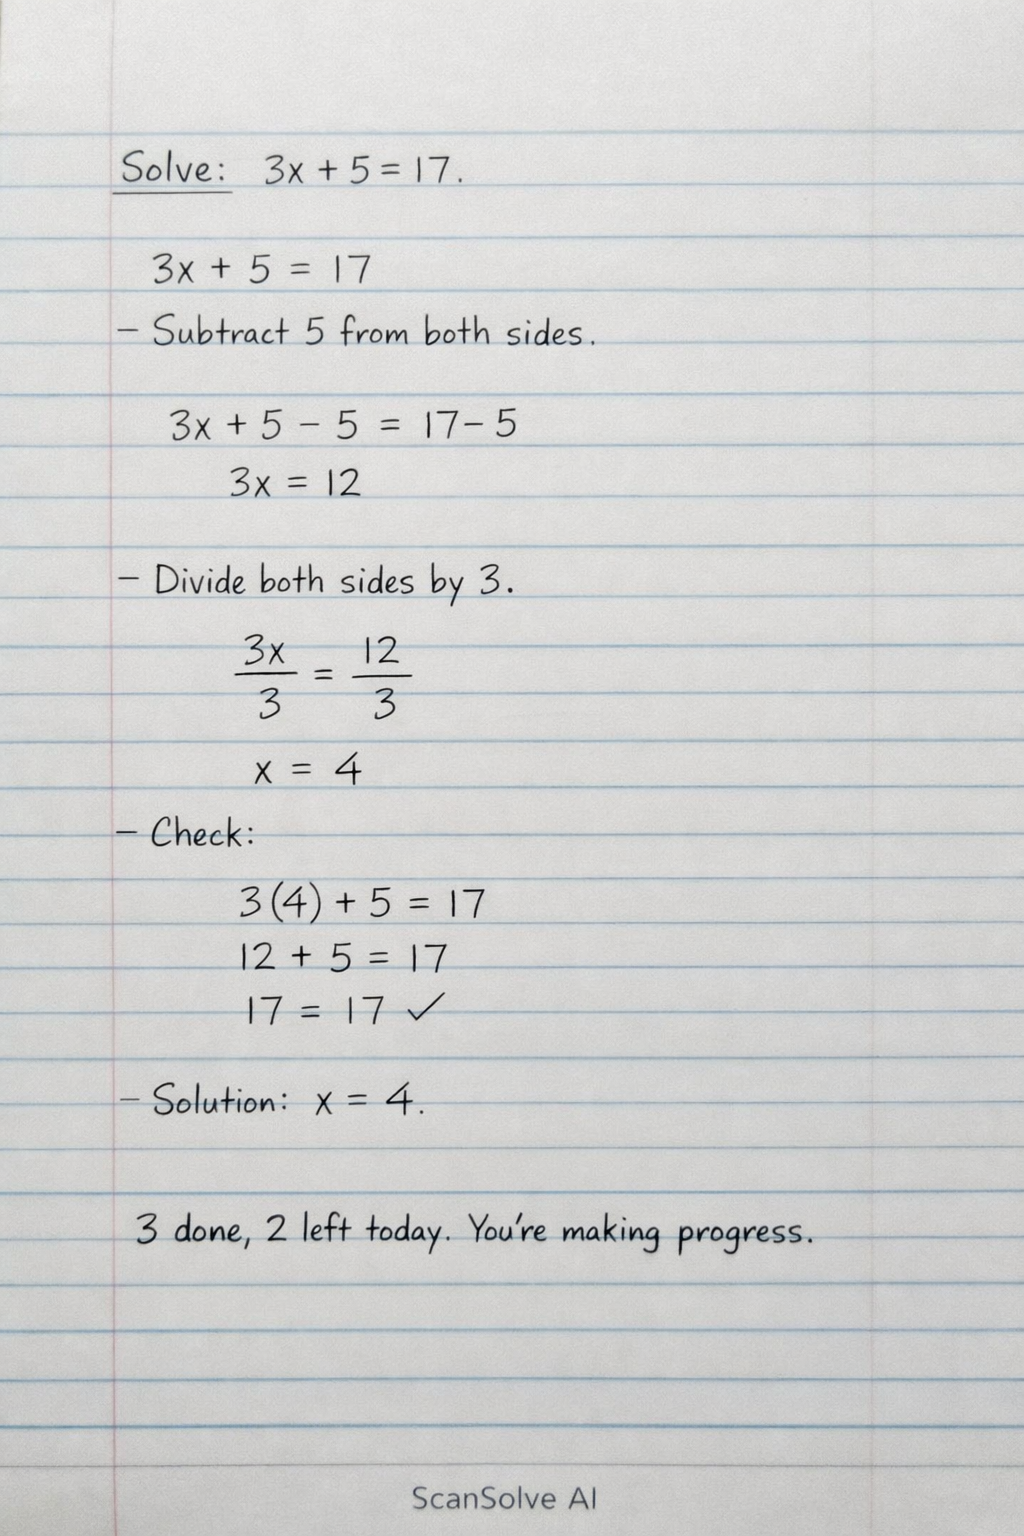 Solve: 3x + 5 = 17.
3x + 5 = 17
– Subtract 5 from both sides.
3x + 5 – 5 = 17 – 5
3x = 12
– Divide both sides by 3.
3x/3 = 12/3
x = 4
– Check:
3(4) + 5 = 17
12 + 5 = 17
17 = 17 ✓
– Solution: x = 4.
3 done, 2 left today. You're making progress.
ScanSolve AI